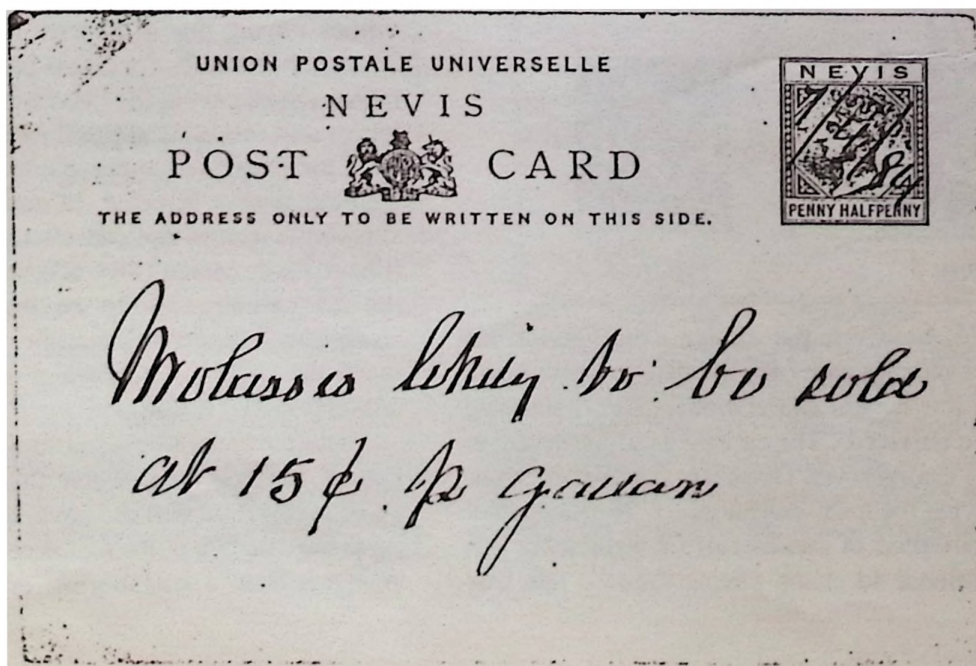 UNION POSTALE UNIVERSELLE
NEVIS
POST CARD
THE ADDRESS ONLY TO BE WRITTEN ON THIS SIDE.
NEVIS
PENNY HALFPENNY
Molasses likely to be sold
at 15¢ p gallon